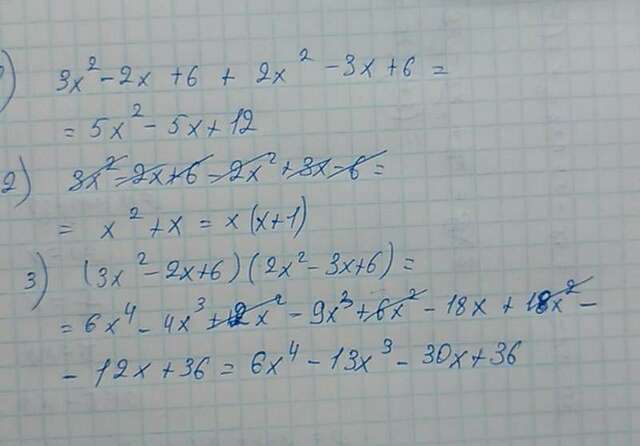 ) 3x² - 2x + 6 + 2x² - 3x + 6 =
= 5x² - 5x + 12
2) 3x² - 2x + 6 - 2x² + 3x - 6 =
= x² + x = x(x+1)
3) (3x² - 2x + 6)(2x² - 3x + 6) =
= 6x⁴ - 4x³ + 12x² - 9x³ + 6x² - 18x + 18x² -
- 12x + 36 = 6x⁴ - 13x³ - 30x + 36